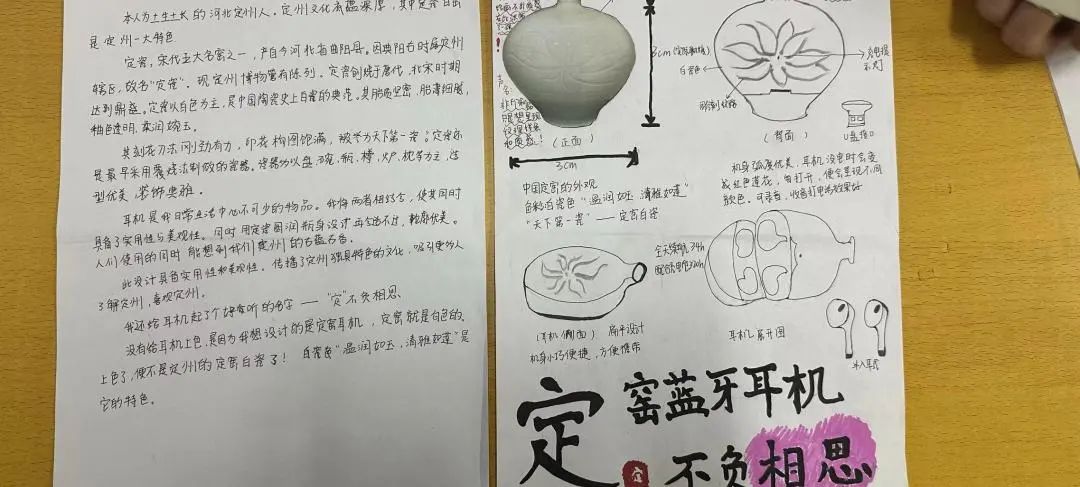 本人为土生土长的河北定州人。定州文化底蕴深厚,其中定瓷白瓷
是定州一大特色
定窑,宋代五大名窑之一,产自今河北省曲阳县。因曲阳古时属定州
辖区,故名“定瓷”。现定州博物馆有陈列。定窑创烧于唐代,北宋时期
达到鼎盛。定窑以白色为主,是中国陶瓷史上白瓷的典范。其胎质坚密,胎薄细腻,
釉色透明,柔润
其刻花刀法刚劲有力,印花构图饱满,被誉为天下第一瓷。定窑还
是最早采用覆烧法制成的瓷器。瓷器为以盘、碗、瓶、樽、炉、枕等为主,造
型优美,装饰典雅。
耳机是我日常生活中必不可少的物品。我将两者相结合,使其同时
具备了实用性与美观性。同时用定窑圆润瓶身设计再合适不过,轮廓优美。
人们使用的同时能想到我们定州的古蕴古香。
此设计具备实用性和美观性。传播了定州独具特色的文化,吸引更多人
了解定州,喜欢定州。
我还给耳机起了个好听的名字——“定”不负相思、
没有给耳机上色,是因为我想设计的是定窑耳机,定窑就是白色的、
上色了,便不是定州的定窑白瓷了!白瓷色“温润如玉,清雅如莲”是
它的特色。
3cm
(正面)
3cm
白瓷色
充电提
示灯
U盘接口
(背面)
中国定窑的外观
色彩白瓷色“温润如玉,清雅如莲”
“天下第一瓷”——定窑白瓷
机身弧度优美,耳机没电时会变
成红色莲花,每打开,便会呈现不同
颜色。可录音,收音打电话效果好
(耳机侧面)扁平设计
机身小巧便捷,方便携带
耳机展开图
入耳式
定
窑蓝牙耳机
定
不负相思